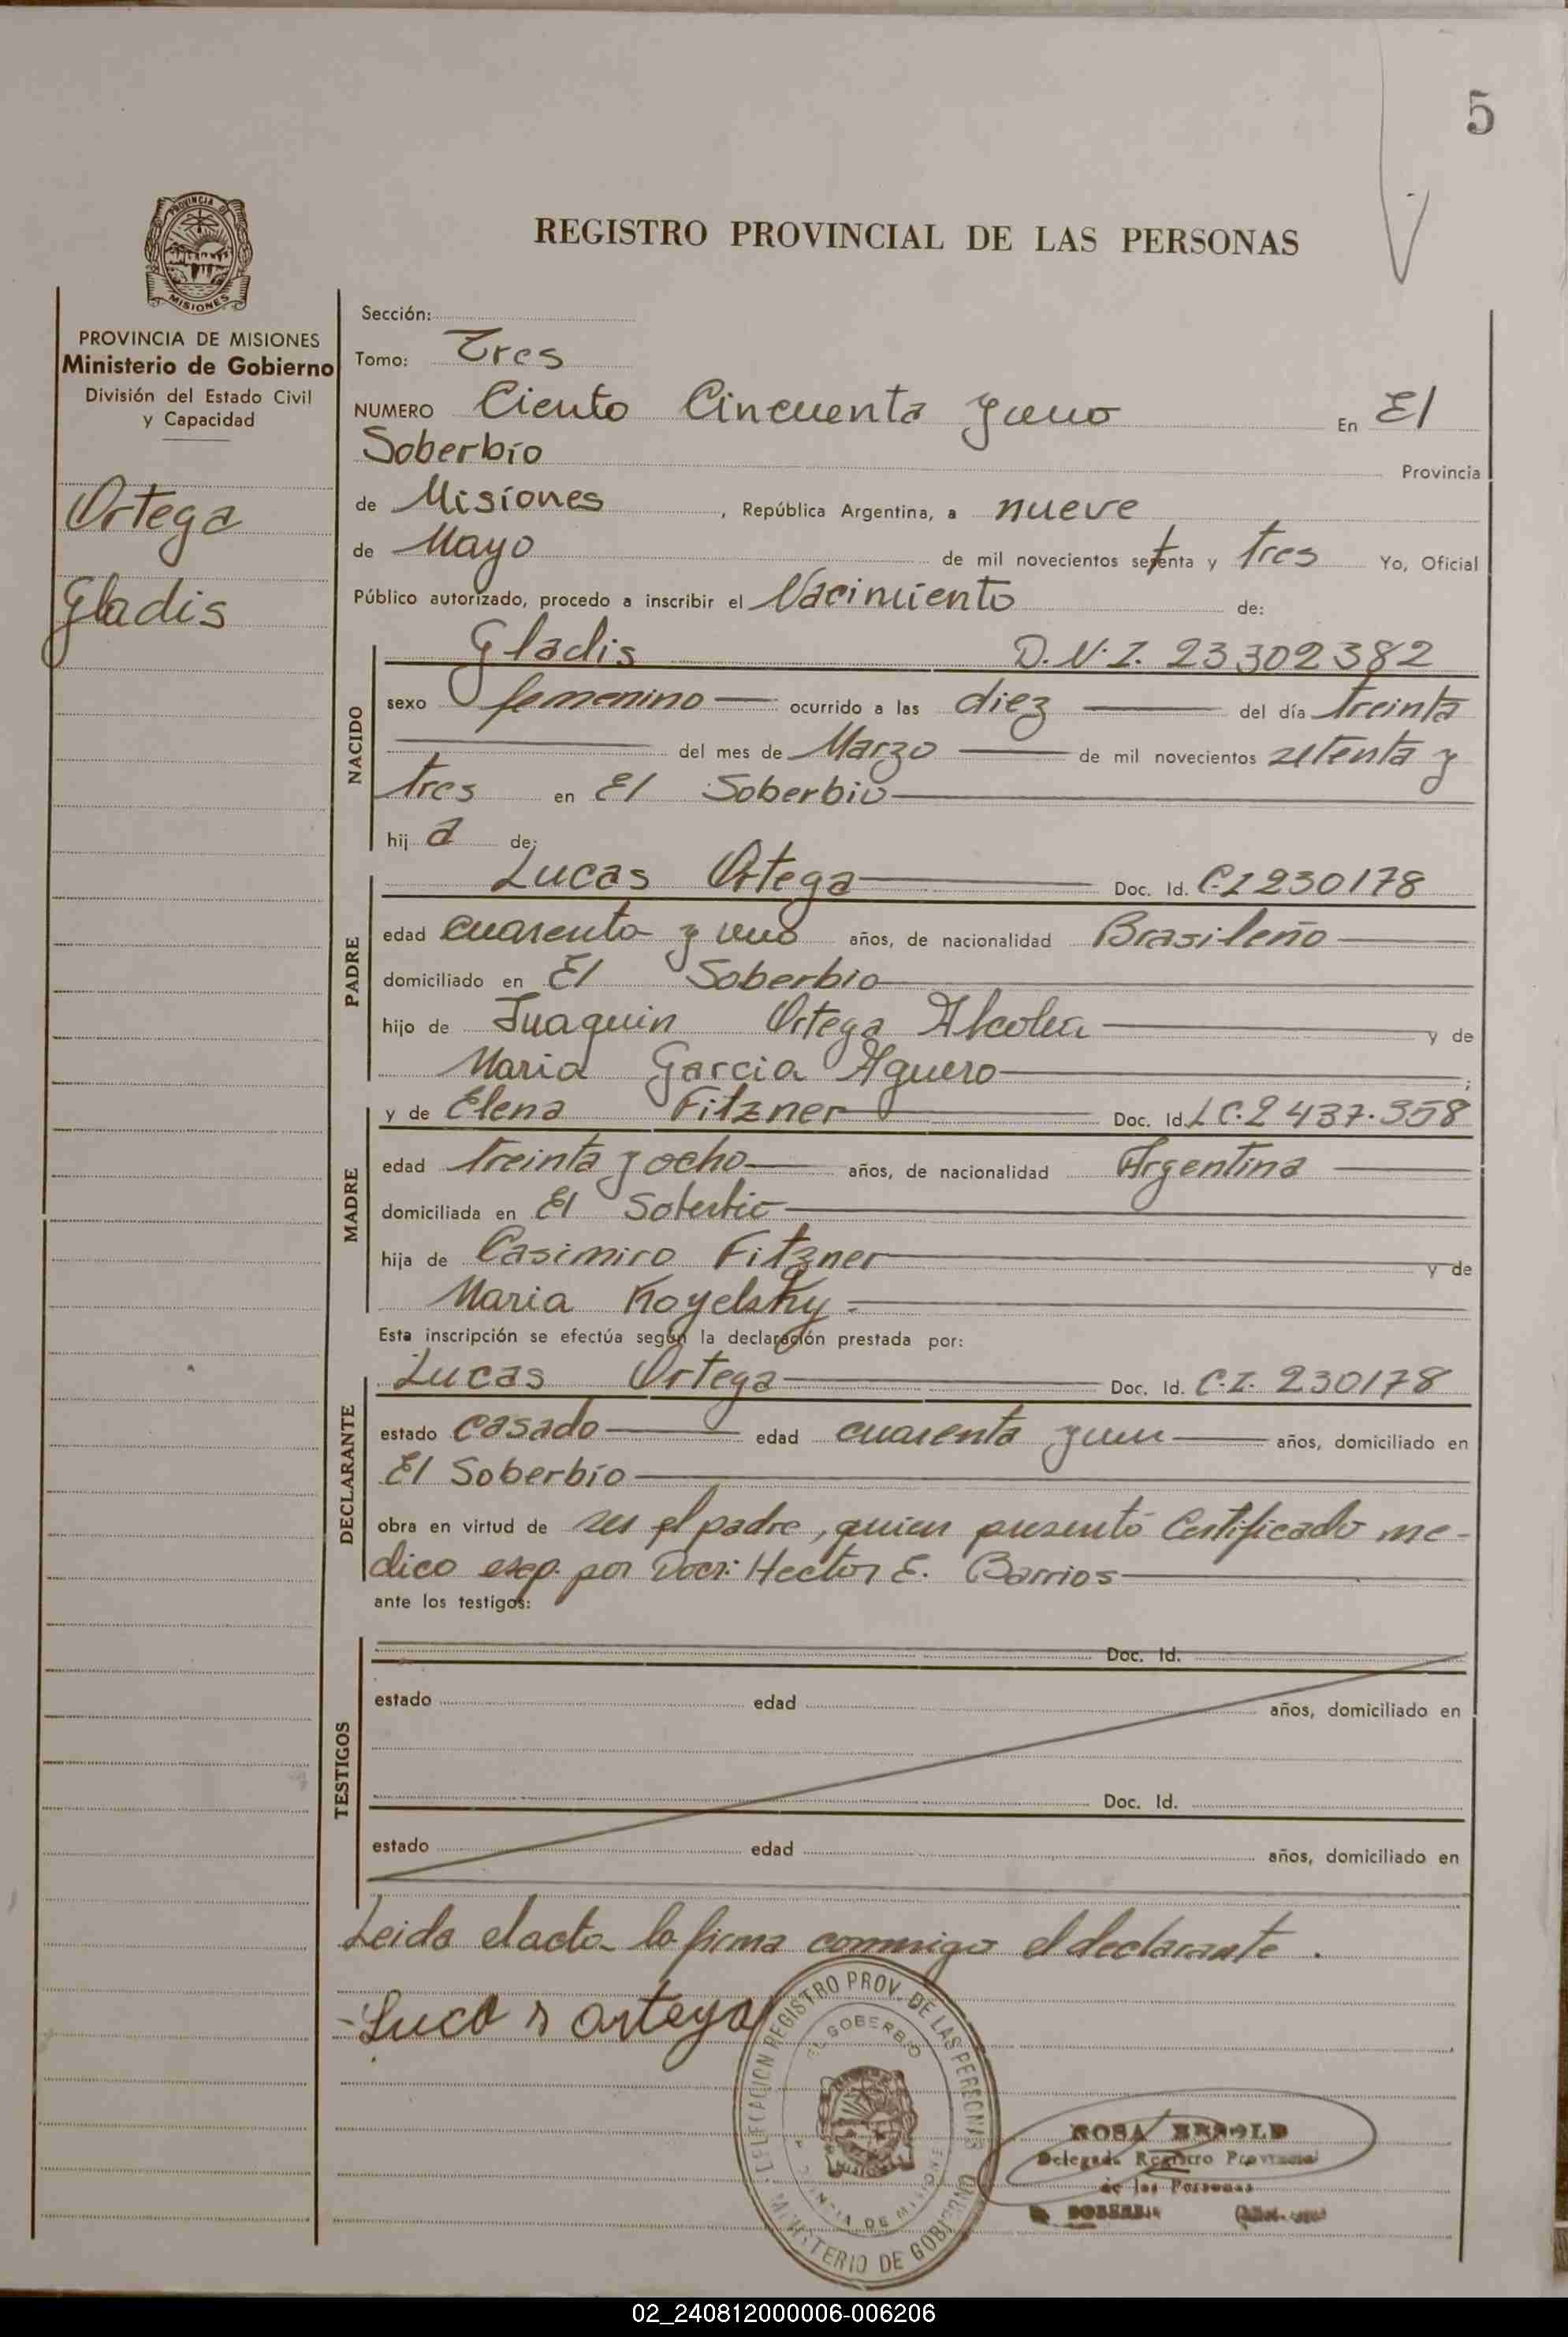 5
REGISTRO PROVINCIAL DE LAS PERSONAS
PROVINCIA DE
MISIONES
PROVINCIA DE MISIONES
Ministerio de Gobierno
División del Estado Civil
y Capacidad
Ortega
Gladis
Sección:
Tomo: Tres
NUMERO Ciento Cincuenta y uno En El
Soberbio Provincia
de Misiones , República Argentina, a nueve
de Mayo de mil novecientos setenta y tres Yo, Oficial
Público autorizado, procedo a inscribir el Nacimiento de:
NACIDO
Gladis D.N.I. 23302382
sexo femenino ocurrido a las diez del día treinta
del mes de Marzo de mil novecientos setenta y
tres en El Soberbio
hij a de:
PADRE
Lucas Ortega Doc. Id. C.I 230178
edad cuarenta y uno años, de nacionalidad Brasileño
domiciliado en El Soberbio
hijo de Juaquin Ortega Alcolea y de
Maria Garcia Aguero ;
MADRE
y de Elena Fitzner Doc. Id. LC.2 437.358
edad treinta y ocho años, de nacionalidad Argentina
domiciliada en El Soberbio
hija de Casimiro Fitzner y de
Maria
Esta inscripción se efectúa según la declaración prestada por:
DECLARANTE
Lucas Ortega Doc. Id. C.I. 230178
estado casado edad cuarenta y un años, domiciliado en
El Soberbio
obra en virtud de ser el padre, quien presentó Certificado me-
dico exp. por Hector E. Barrios
ante los testigos:
TESTIGOS
Doc. Id.
estado edad años, domiciliado en
Doc. Id.
estado edad años, domiciliado en
Leida el acta la firma conmigo el declarante.
Lucas Ortega
DELEGACION REGISTRO PROV. DE LAS PERSONAS
EL SOBERBIO
PROVINCIA DE MISIONES
MISIONES
MINISTERIO DE GOBIERNO
ROSA
Delegada Registro Provincial
de las Personas
SOBERBIO
02_240812000006-006206